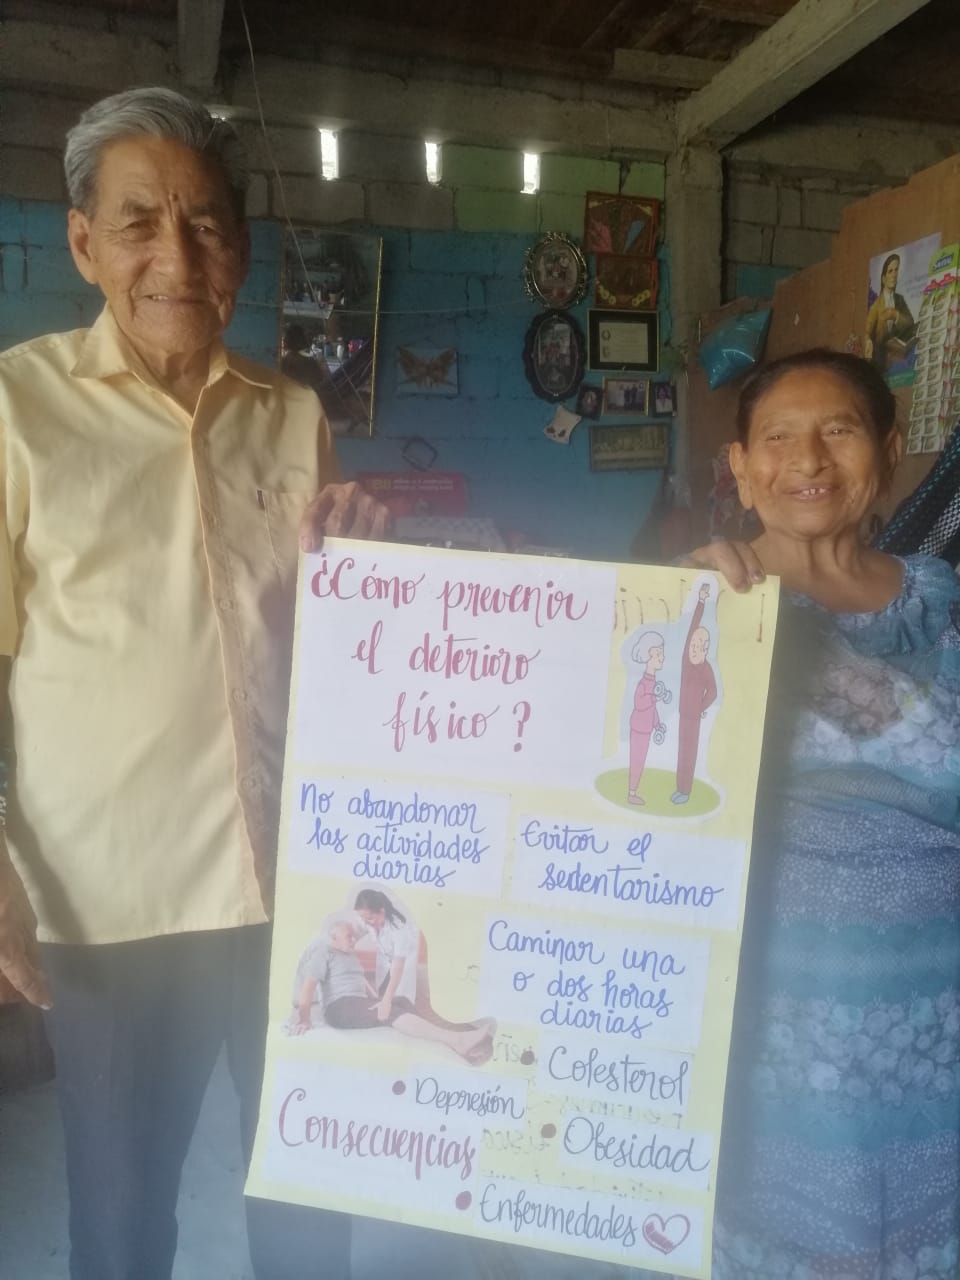 ¿Cómo prevenir
el deterioro
físico?
No abandonar
las actividades
diarias
Evitar el
sedentarismo
Caminar una
o dos horas
diarias
Consecuencias
• Depresión
• Colesterol
• Obesidad
• Enfermedades